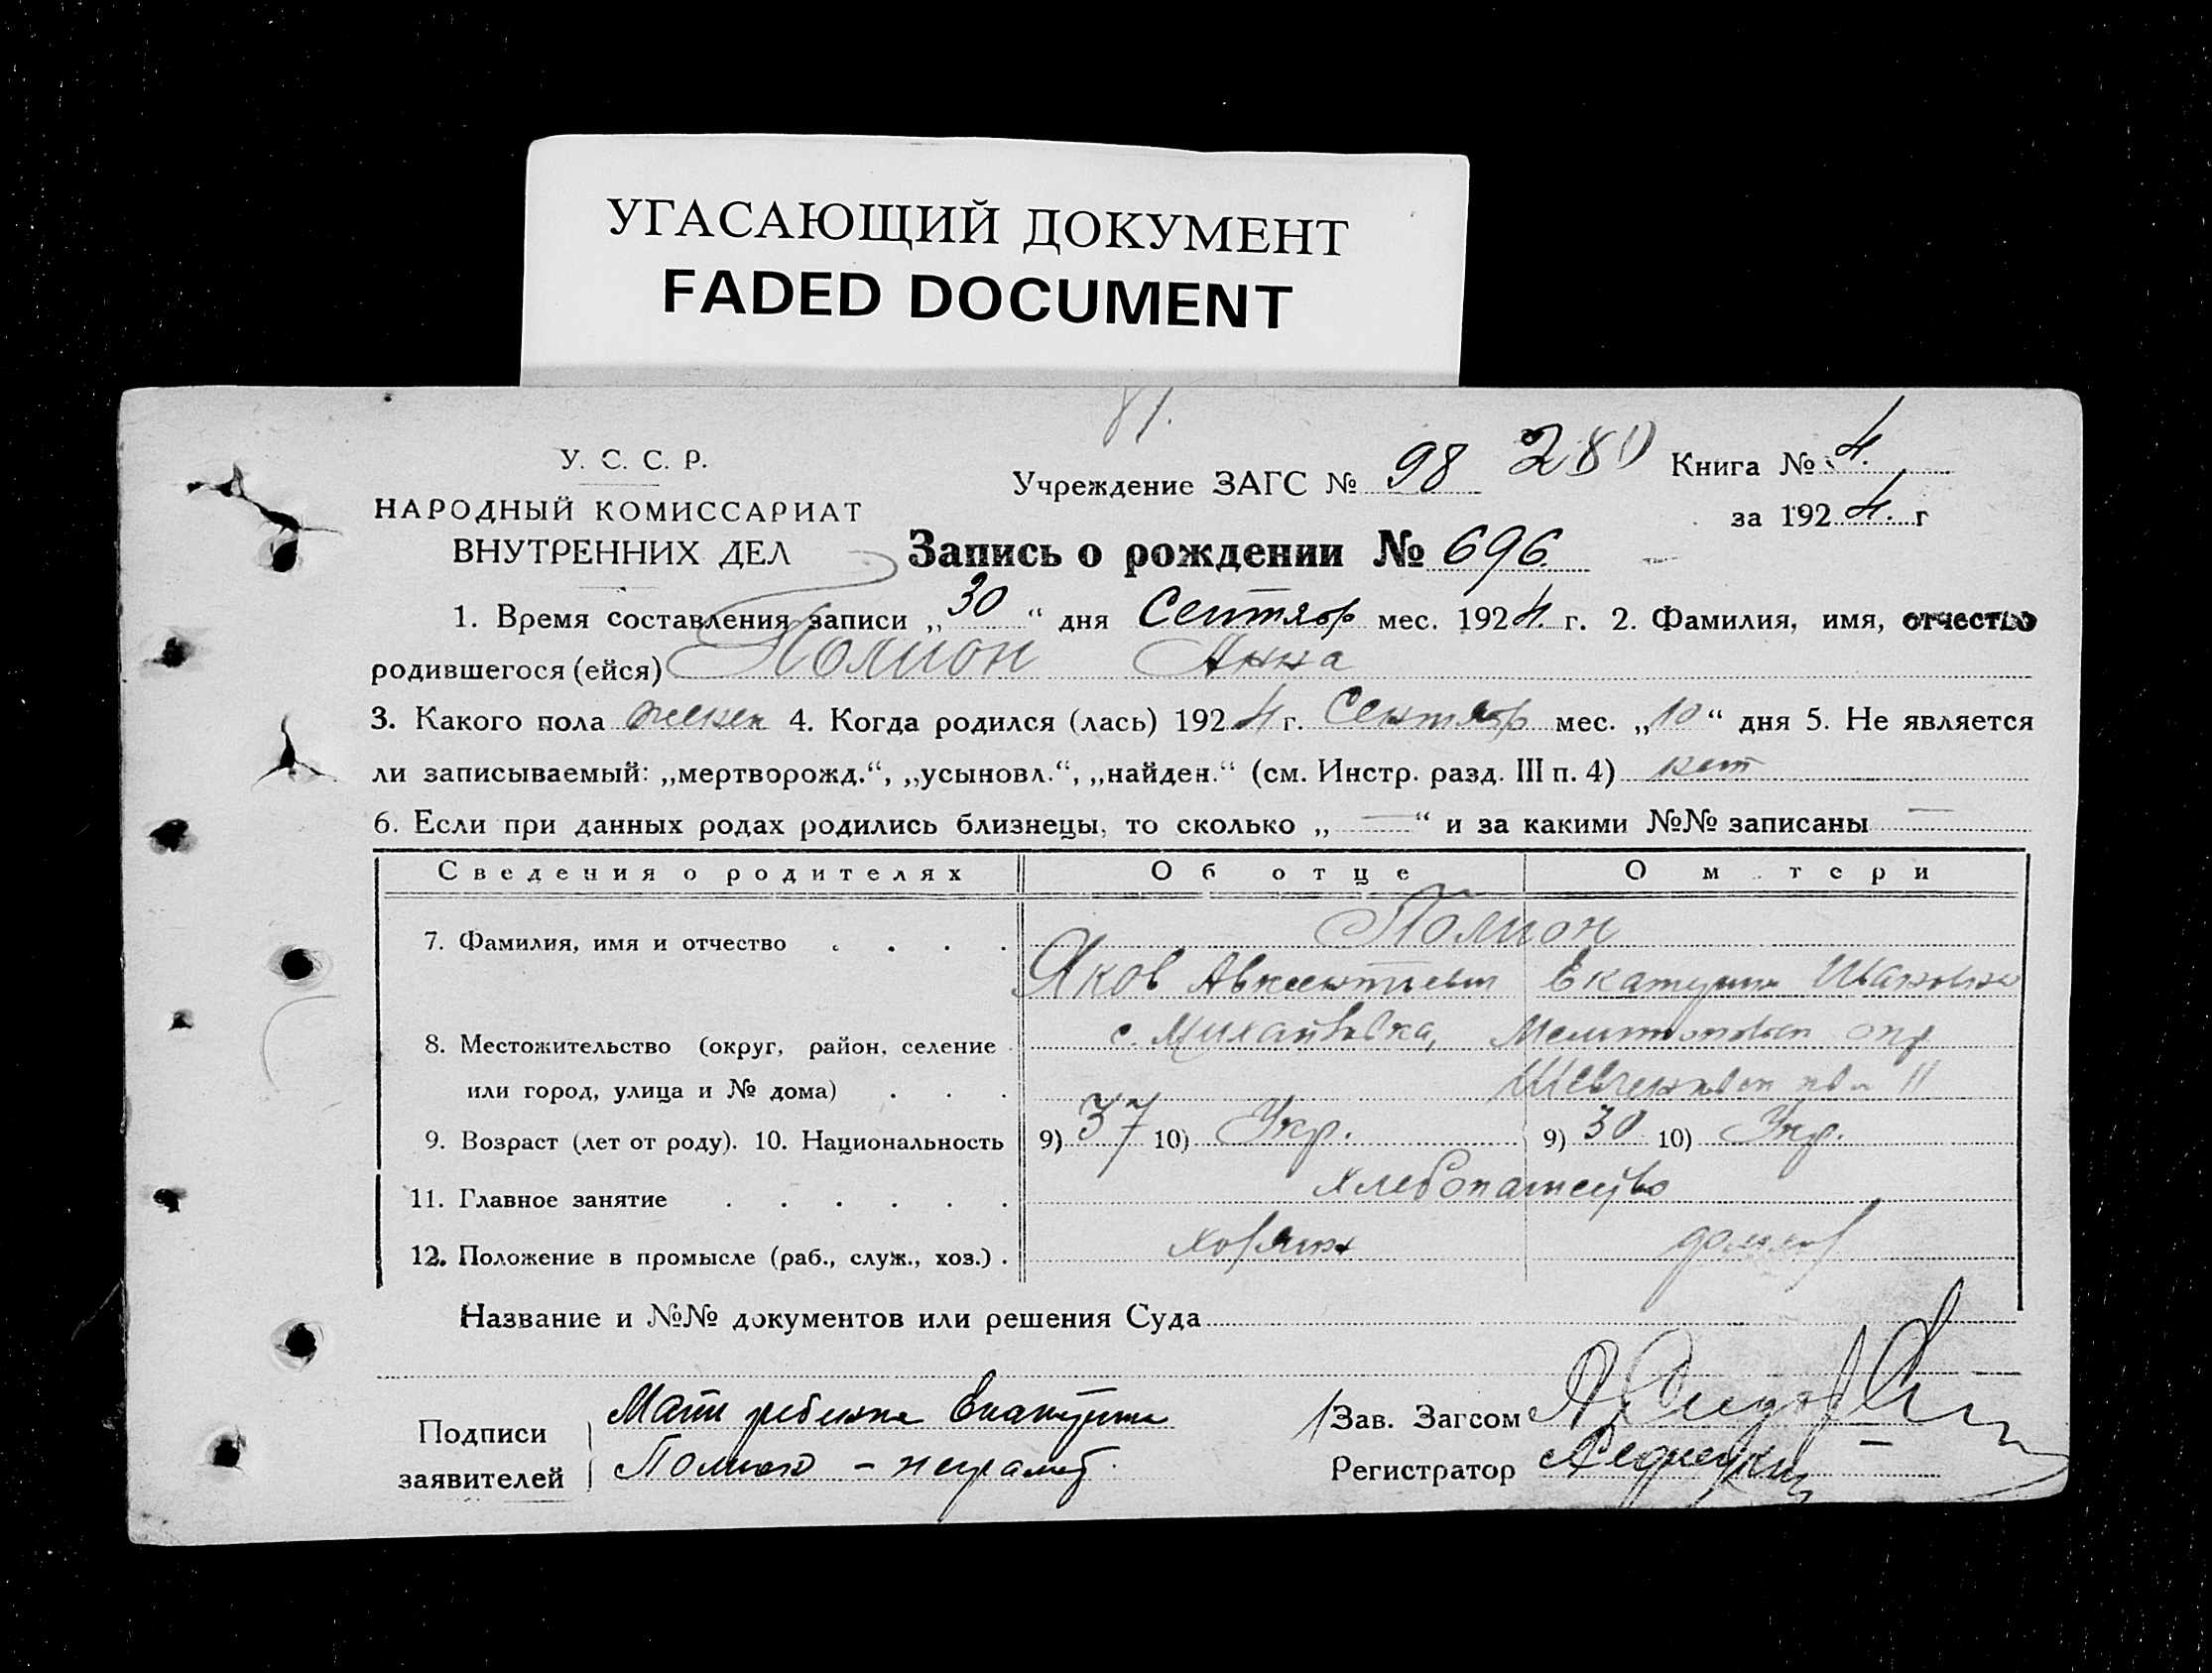 УГАСАЮЩИЙ ДОКУМЕНТ
FADED DOCUMENT
81.
У. С. С. Р.
НАРОДНЫЙ КОМИССАРИАТ
ВНУТРЕННИХ ДЕЛ
Учреждение ЗАГС № 98 280 Книга № 4.
за 1924. г
Запись о рождении № 696.
1. Время составления записи „30“ дня Сентябр мес. 1924. г. 2. Фамилия, имя, отчество
родившегося (ейся) Полион Анна
3. Какого пола женск 4. Когда родился (лась) 1924 г. Сентябр мес. „10“ дня 5. Не является
ли записываемый: „мертворожд.“, „усыновл.“, „найден.“ (см. Инстр. разд. III п. 4) нет
6. Если при данных родах родились близнецы, то сколько „ — “ и за какими №№ записаны —
Сведения о родителях Об отце О м тери
7. Фамилия, имя и отчество . . . . Полион
Яков Авксентиевич Екатерина Ивановна
8. Местожительство (округ, район, селение с. Михайловка, Мелитопольск окр
или город, улица и № дома) . . . Шевченковск 11
9. Возраст (лет от роду). 10. Национальность 9) 37 10) Укр. 9) 30 10) Укр.
11. Главное занятие . . . . . . хлебопашество
12. Положение в промысле (раб., служ., хоз.) . хозяин домхоз
Название и №№ документов или решения Суда
Подписи заявителей
Мать ребенка Екатерина
Полион - неграмот.
Зав. Загсом
Регистратор